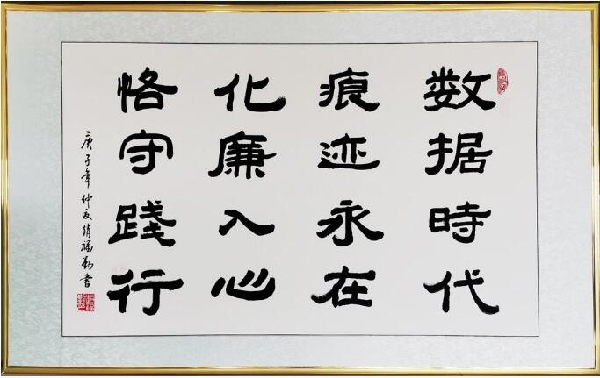 数据時代
痕迹永在
化廉入心
恪守踐行
庚子年仲夏
書